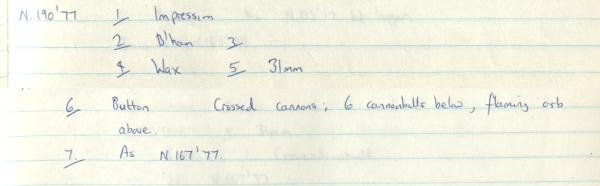 N.190'77 1 Impression
2 B'ham 3
4 Wax 5 31mm
6 Button Crossed cannons; 6 cannonballs below, flaming orb
above.
7 As N.167'77.